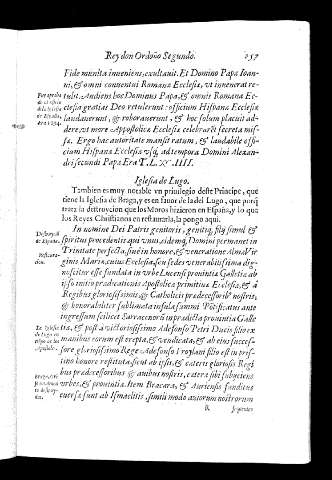 Rey don Ordoño Segundo. 257
Fide munita inueniens, exultauit. Et Domino Papa Ioan-
ni, & omni conuentui Romanæ Ecclesiæ, vt inuenerat re-
tulit. Audiens hoc Dominus Papa, & omnis Romana Ec-
clesia gratias Deo retulerunt: officium Hispanæ Ecclesiæ
laudauerunt, & roborauerunt, & hoc solum placuit ad-
dere, vt more Appostolicæ Ecclesiæ celebraret secreta mis-
sæ. Ergo hac autoritate mansit ratum, & laudabile offi-
cium Hispanæ Ecclesiæ vsq; ad tempora Domini Alexan-
dri secundi Papæ Era
Iglesia de Lugo.
Tambien es muy notable vn priuilegio deste Principe, que
tiene la Iglesia de Braga, y es en fauor de la de Lugo, que porq̃
trata la destruycion que los Moros hizieron en España, y lo que
los Reyes Christianos en restaurarla, la pongo aqui.
In nomine Dei Patris genitoris, genitiq; filij simul &
spiritus procedentis qui vnus, eidemq; Domini permanet in
Trinitate perfecta, siuè in honore, & veneratione Almæ Vir
ginis Mariæ, cuius Ecclesia, seu sedes venerabilissima dig-
noscitur esse fundata in vrbe Lucensi prouintia Galletiæ ab
ipso initio prædicationis Apostolicæ primitiua Ecclesia, & à
Regibus gloriosissimis, & Catholicis prædecessorib' nostris,
& honorabiliter sublimata insula summi Põtificatus ante
ingressum scilicet Sarracenorũ in prædicta prouintia Galle
tiæ, & post à victoriosissimo Adefonso Petri Ducis filio ex
manibus eorum est erepta, & vendicata, & ab eius succes-
sore gloriosissimo Rege Adefonso Froylani filio est in pris-
timo honore restituta, sicut ab ipsis, & cæteris gloriosis Regi
bus prædecessoribus & auibus nostris, cæteræ sibi subijciens
vrbes, & prouintiæ. Item Bracara, & Auriensis funditus
euersæ sunt ab Ismaelitis, simili modo auiorum nostrorum
R